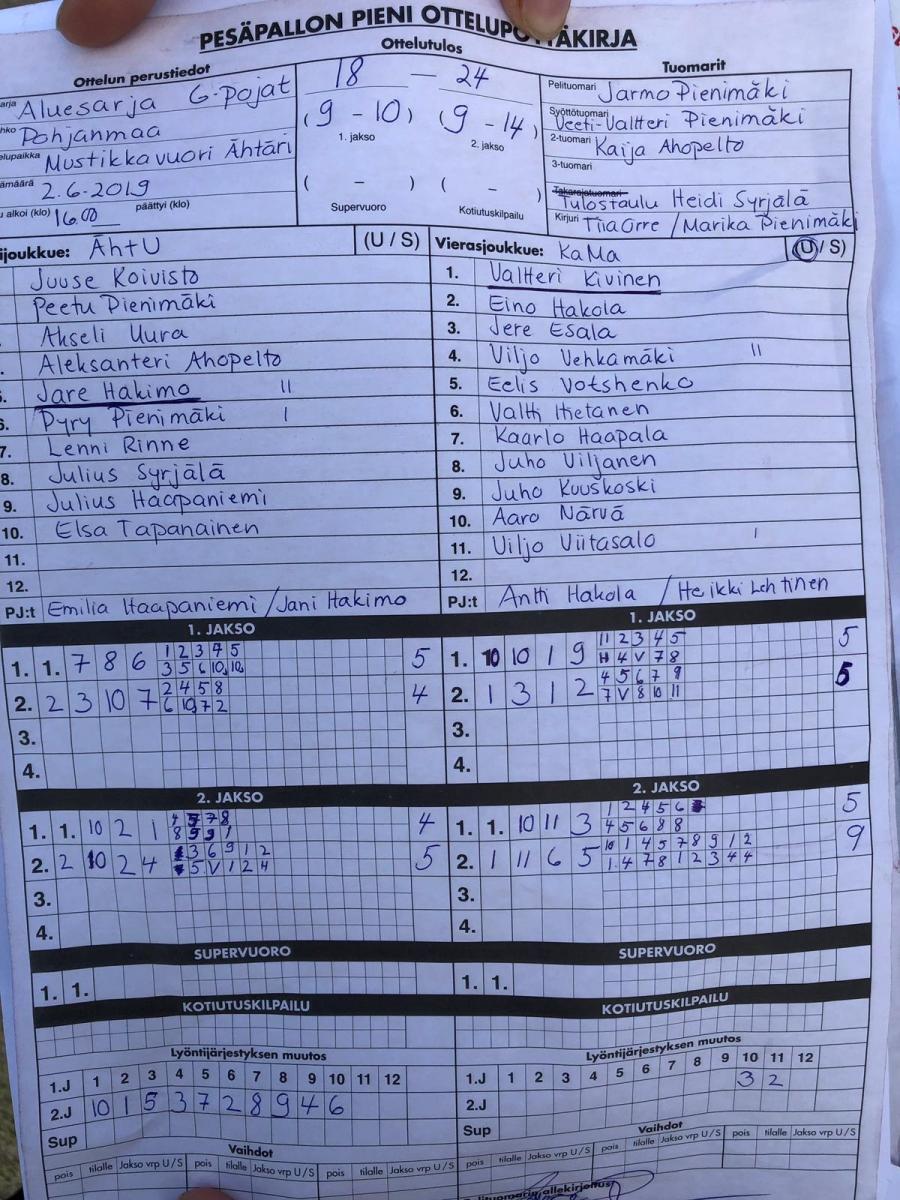 PESÄPALLON PIENI OTTELUPÖYTÄKIRJA
Ottelun perustiedot
Aluesarja G-pojat
Pohjanmaa
Mustikkavuori Ähtäri
2.6.2019
alkoi (klo) 16.00 päättyi (klo)
Ottelutulos
18 - 24
(9 - 10) (9 - 14)
1. jakso 2. jakso
( - ) ( - )
Supervuoro Kotiutuskilpailu
Tuomarit
Pelituomari Jarmo Pienimäki
Syöttötuomari Veeti-Valtteri Pienimäki
2-tuomari Kaija Ahopelto
3-tuomari
Takarajatuomari Tulostaulu Heidi Syrjälä
Kirjuri Tiia Orre / Marika Pienimäki
ÄhtU (U / S)
Juuse Koivisto
Peetu Pienimäki
Akseli Uura
Aleksanteri Ahopelto
Jare Hakimo II
Pyry Pienimäki I
7. Lenni Rinne
8. Julius Syrjälä
9. Julius Haapaniemi
10. Elsa Tapanainen
11.
12.
PJ:t Emilia Haapaniemi / Jani Hakimo
Vierasjoukkue: KaMa (U / S)
1. Valtteri Kivinen
2. Eino Hakola
3. Jere Esala
4. Viljo Vehkamäki II
5. Eelis Votshenko
6. Valtti Hietanen
7. Kaarlo Haapala
8. Juho Viljanen
9. Juho Kuuskoski
10. Aaro Närvä
11. Viljo Viitasalo I
12.
PJ:t Antti Hakola / Heikki Lehtinen
1. JAKSO
1. 1. 7 8 6 1 2 3 4 5 5
3 5 6 10 10
2. 2 3 10 7 2 4 5 8 4
6 10 7 2
3.
4.
1. JAKSO
1. 10 10 1 9 11 2 3 4 5 5
4 V 7 8
2. 1 3 1 2 4 5 6 7 9 5
7 V 8 10 11
3.
4.
2. JAKSO
1. 1. 10 2 1 4 5 7 8 4
8 9 9 1
2. 2 10 2 4 3 6 9 1 2 5
5 V 1 2 4
3.
4.
2. JAKSO
1. 1. 10 11 3 1 2 4 5 6 5
4 5 6 8 8
2. 1 11 6 5 10 1 4 5 7 8 9 1 2 9
1 4 7 8 1 2 3 4 4
3.
4.
SUPERVUORO
1. 1.
SUPERVUORO
1. 1.
KOTIUTUSKILPAILU
KOTIUTUSKILPAILU
Lyöntijärjestyksen muutos
1.J 1 2 3 4 5 6 7 8 9 10 11 12
2.J 10 1 5 3 7 2 8 9 4 6
Sup
Lyöntijärjestyksen muutos
1.J 1 2 3 4 5 6 7 8 9 10 11 12
3 2
2.J
Sup
Vaihdot
pois tilalle Jakso vrp U/S pois tilalle Jakso vrp U/S pois tilalle Jakso vrp U/S
Vaihdot
pois tilalle Jakso vrp U/S pois tilalle Jakso vrp U/S pois tilalle Jakso vrp U/S